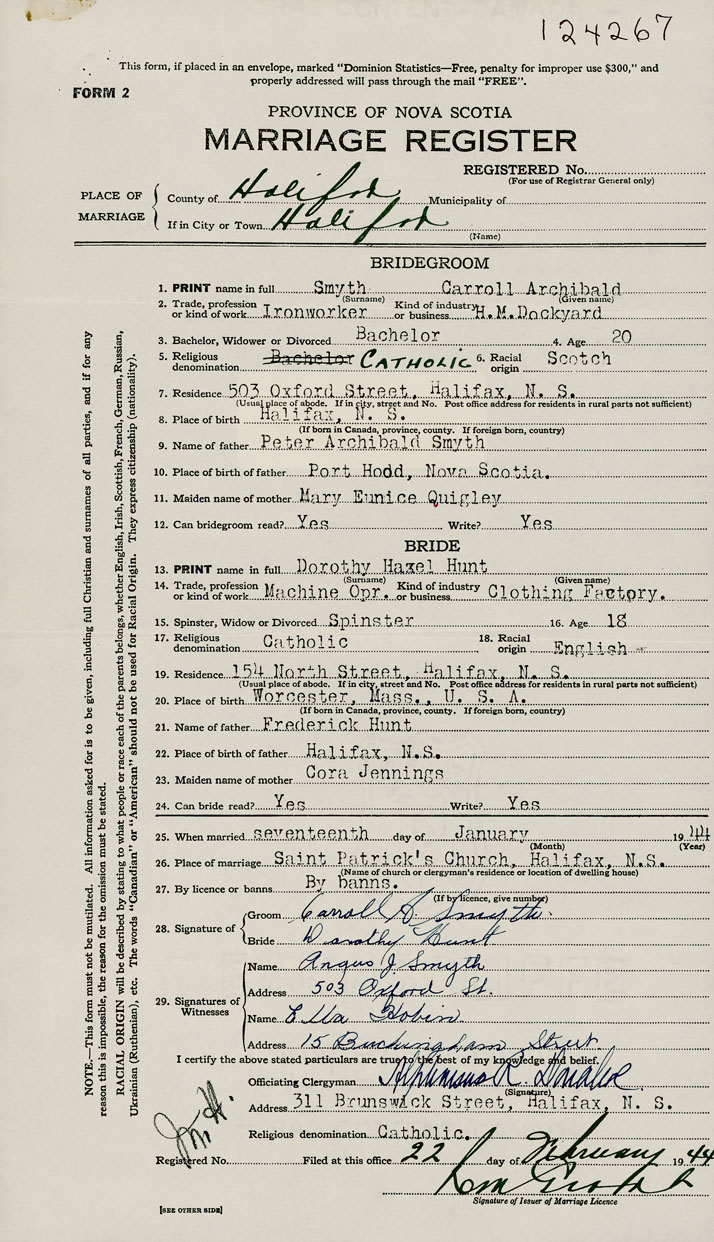 124267
This form, if placed in an envelope, marked “Dominion Statistics—Free, penalty for improper use $300,” and
properly addressed will pass through the mail “FREE”.
FORM 2
PROVINCE OF NOVA SCOTIA
MARRIAGE REGISTER
REGISTERED No.
(For use of Registrar General only)
PLACE OF MARRIAGE
County of Halifax Municipality of
If in City or Town Halifax
(Name)
BRIDEGROOM
1. PRINT name in full Smyth Carroll Archibald
(Surname) (Given name)
2. Trade, profession or kind of work Ironworker Kind of industry or business H.M.Dockyard
3. Bachelor, Widower or Divorced Bachelor 4. Age 20
5. Religious denomination Bachelor CATHOLIC 6. Racial origin Scotch
7. Residence 503 Oxford Street, Halifax, N. S.
(Usual place of abode. If in city, street and No. Post office address for residents in rural parts not sufficient)
8. Place of birth Halifax, N. S.
(If born in Canada, province, county. If foreign born, country)
9. Name of father Peter Archibald Smyth
10. Place of birth of father Port Hodd, Nova Scotia.
11. Maiden name of mother Mary Eunice Quigley
12. Can bridegroom read? Yes Write? Yes
BRIDE
13. PRINT name in full Dorothy Hazel Hunt
(Surname) (Given name)
14. Trade, profession or kind of work Machine Opr. Kind of industry or business Clothing Factory.
15. Spinster, Widow or Divorced Spinster 16. Age 18
17. Religious denomination Catholic 18. Racial origin English
19. Residence 154 North Street, Halifax, N. S.
(Usual place of abode. If in city, street and No. Post office address for residents in rural parts not sufficient)
20. Place of birth Worcester, Mass., U. S. A.
(If born in Canada, province, county. If foreign born, country)
21. Name of father Frederick Hunt
22. Place of birth of father Halifax, N.S.
23. Maiden name of mother Cora Jennings
24. Can bride read? Yes Write? Yes
25. When married seventeenth day of January 1944
(Month) (Year)
26. Place of marriage Saint Patrick's Church, Halifax, N.S.
(Name of church or clergyman's residence or location of dwelling house)
27. By licence or banns By banns.
(If by licence, give number)
28. Signature of
Groom Carroll A. Smyth.
Bride Dorothy Hunt
29. Signatures of Witnesses
Name Angus J Smyth
Address 503 Oxford St.
Name Ella Hobin
Address 15 Buckingham Street
I certify the above stated particulars are true to the best of my knowledge and belief.
Officiating Clergyman Alphonsus R. Donahoe
(Signature)
Address 311 Brunswick Street, Halifax, N. S.
Religious denomination Catholic.
Registered No. Filed at this office 22 day of February 1944
Signature of Issuer of Marriage Licence
[SEE OTHER SIDE]
NOTE.—This form must not be mutilated. All information asked for is to be given, including full Christian and surnames of all parties, and if for any
reason this is impossible, the reason for the omission must be stated.
RACIAL ORIGIN will be described by stating to what people or race each of the parents belongs, whether English, Irish, Scottish, French, German, Russian,
Ukrainian (Ruthenian), etc. The words “Canadian” or “American” should not be used for Racial Origin. They express citizenship (nationality).